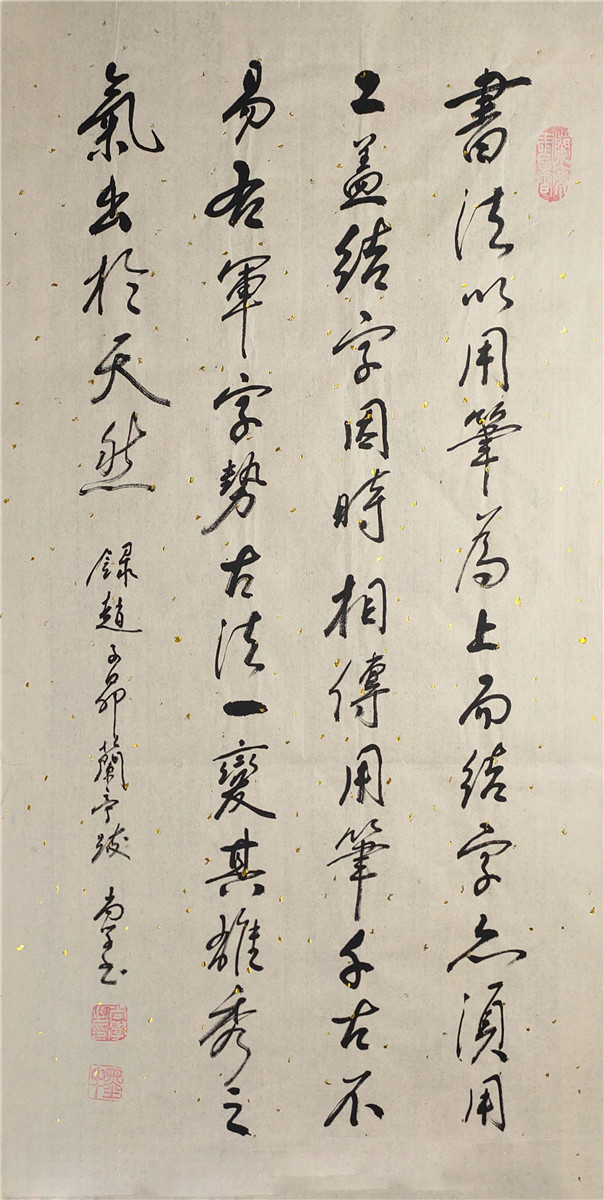 書法以用筆為上而結字亦須用
工蓋結字因時相傳用筆千古不
易右軍字勢古法一變其雄秀之
氣出於天然 錄趙子昂蘭亭跋 尚